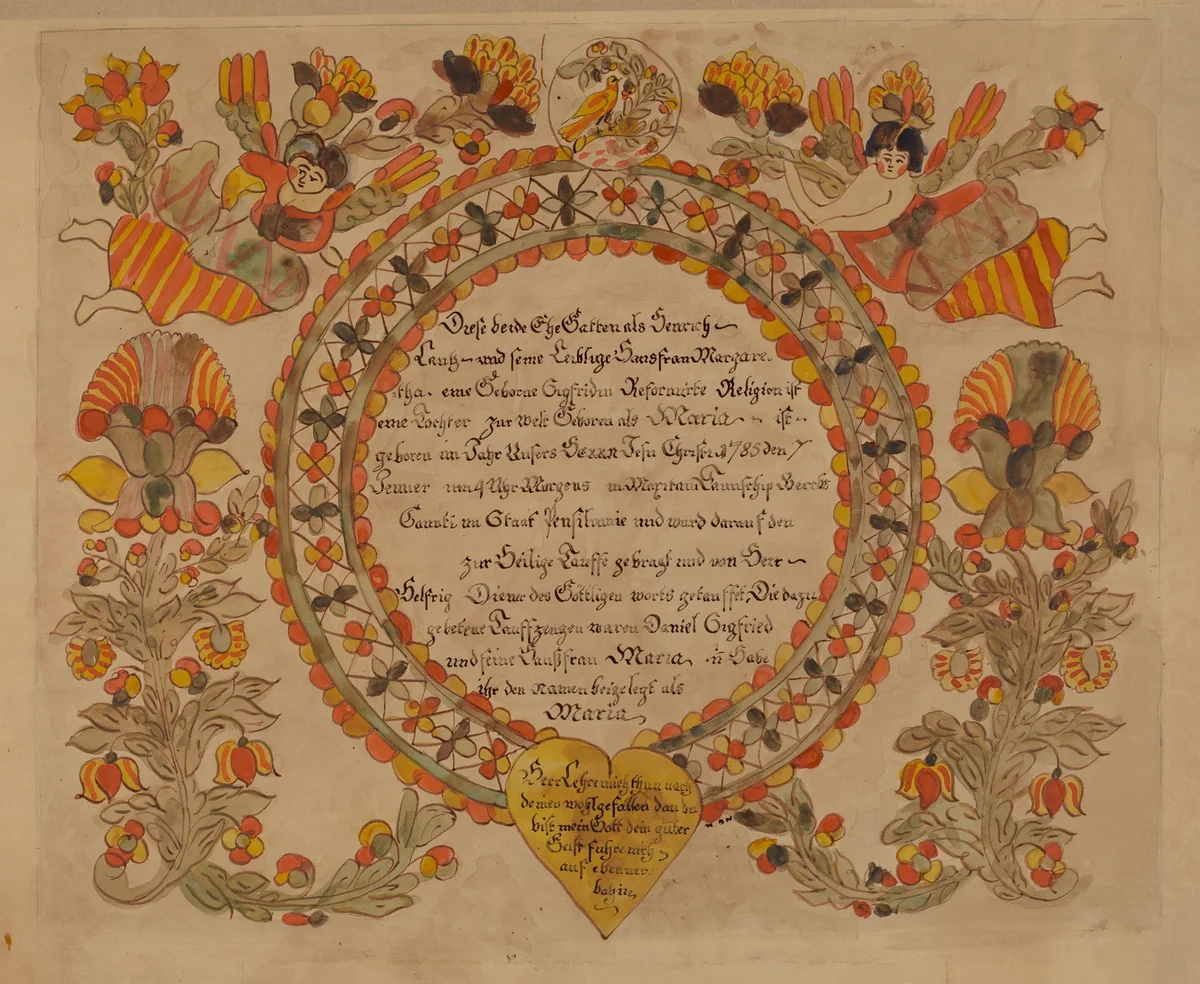 Diese beide Ehe Gatten als Henrich
Lantz und seine Leiblige Hausfrau Margare
tha eine Geborne Sigfriden Reformirte Religion ist
eine Tochter zur Welt Geboren als Maria ist
geboren im Jahr Unsers Herrn Jesu Christi 1785 den 7
Jenner um 4 Uhr Morgens in Maxitani Taunschip Bercks
Caunti im Staat Pensilvanie und ward darauf den
zur Heilige Tauffe gebragt und von Herr
Helfrig Diener des Göttligen worts getauffet, Die dazu
gebetene Tauffzeugen waren Daniel Sigfried
und seine Haußfrau Maria Habe
ihr den namen beigelegt als
Maria
Herr Lehre mich thun nach
deinen wohlgefallen dan du
bist mein Gott dein guter
Geist fuhre mich
auf ebenner
bahn